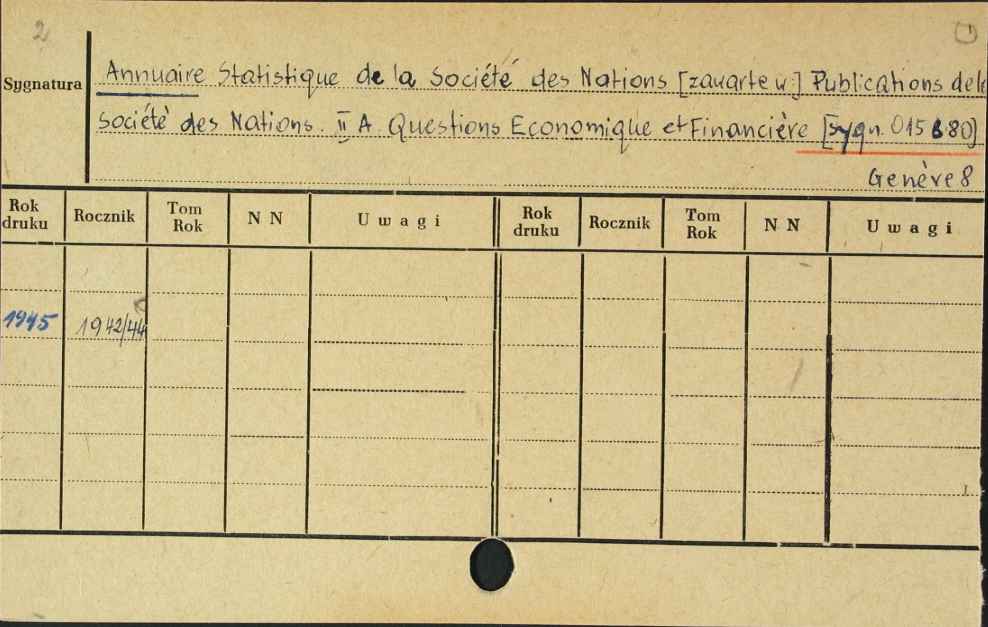 2
Sygnatura
Annuaire Statistique de la Société des Nations [zawarte w:] Publications de la
Société des Nations. II A. Questions Economique et Financière [Sygn. 015680]
Genève 8
Rok druku Rocznik Tom Rok N N Uwagi Rok druku Rocznik Tom Rok N N Uwagi
1945 1942/44